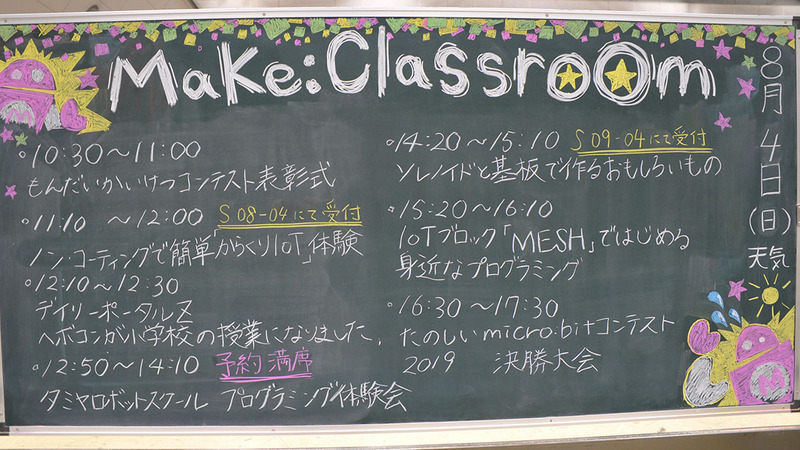 Make: Classroom
8月4日(日)天気
◦10:30～11:00
もんだいかいけつコンテスト表彰式
◦11:10 ～12:00 S08-04にて受付
ノン・コーティングで簡単「からくりIoT」体験
◦12:10～12:30
デイリーポータルZ
ヘボコンが小学校の授業になりました。
◦12:50～14:10 予約満席
タミヤロボットスクール プログラミング体験会
◦14:20～15:10 S09-04にて受付
ソレノイドと基板で作るおもしろいもの
◦15:20～16:10
IoTブロック「MESH」ではじめる
身近なプログラミング
◦16:30～17:30
たのしいmicro:bitコンテスト
2019 決勝大会
M